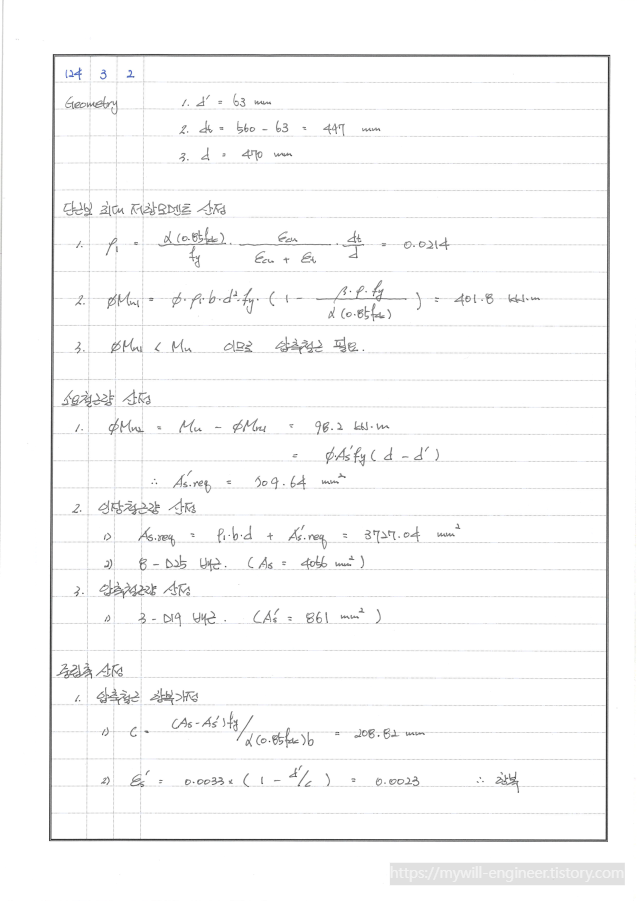 124 3 2
Geometry 1. d' = 63 mm
2. dt = 560 - 63 = 447 mm
3. d = 470 mm
단근보 최대 저항모멘트 산정
1. ρ₁ = α(0.85fck)/fy · εcu/(εcu + εt) · dt/d = 0.0214
2. φMn1 = φ·ρ₁·b·d²·fy·(1 - β·ρ·fy/α(0.85fck)) = 401.8 kN·m
3. φMn1 < Mu 이므로 압축철근 필요.
소요철근량 산정
1. φMn2 = Mu - φMn1 = 98.2 kN·m
= φAs'fy(d - d')
∴ As'.req = 709.64 mm²
2. 인장철근량 산정
1) As.req = ρ₁·b·d + As'.req = 3727.04 mm²
2) 8 - D25 배근. (As = 4056 mm²)
3. 압축철근량 산정
1) 3 - D19 배근. (As' = 861 mm²)
중립축 산정
1. 압축철근 항복가정
1) C = (As-As')fy/α(0.85fck)b = 208.82 mm
2) εs' = 0.0033×(1 - d'/c) = 0.0023 ∴ 항복
https://mywill-engineer.tistory.com